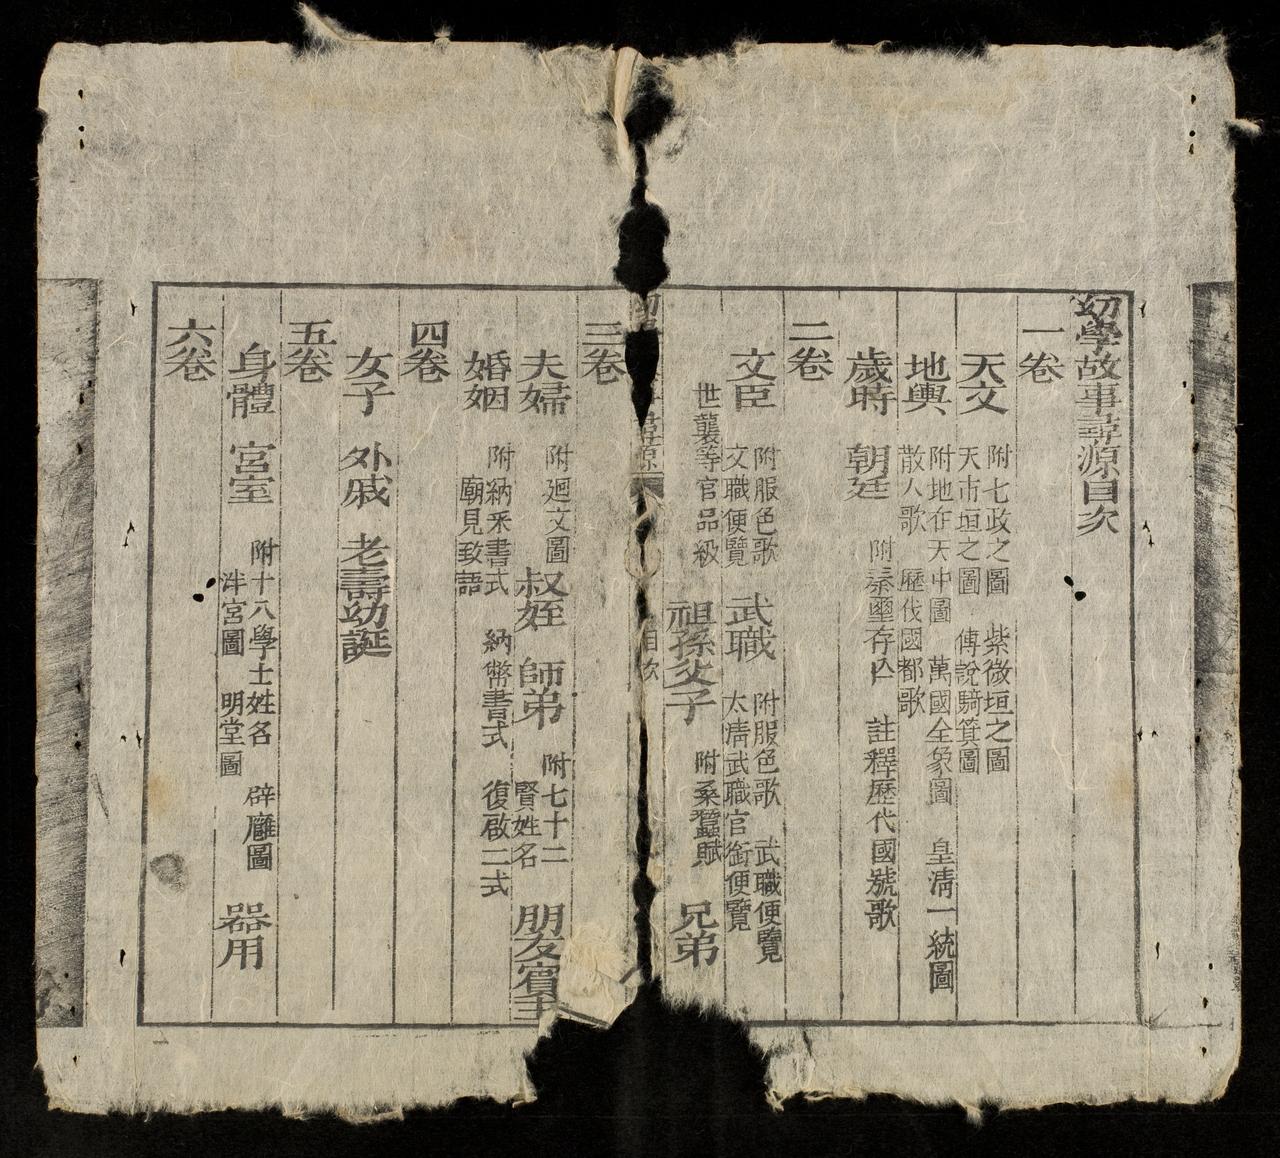 幼學故事尋源目次
一卷
天文 附七政之圖 紫微垣之圖
天市垣之圖 傅說騎箕圖
地輿 附地在天中圖 萬國全象圖 皇清一統圖
散人歌 歷代國都歌
歲時 朝廷 附秦璽存亡 註釋歷代國號歌
二卷
文臣 附服色歌 文職便覽 武職 附服色歌 武職便覽
太清武職官銜便覽
世襲等官品級 祖孫父子 附蚕蠶賦 兄弟
幼學 尋源 目次
三卷
夫婦 附廻文圖 叔姪 師弟 附七十二賢姓名 朋友賓主
婚姻 附納采書式 納幣書式 復啟二式
廟見致語
四卷
女子 外戚 老壽幼誕
五卷
身體 宮室 附十八學士姓名 辟廱圖
泮宮圖 明堂圖 器用
六卷